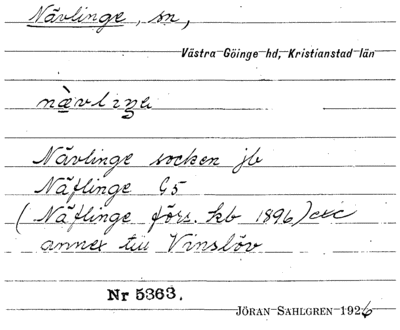 Nävlinge, sn,
Västra Göinge hd, Kristianstad län
Nävlinge socken jb
Näflinge G5
(Näflinge förs. kb 1896) etc
annex till Vinslöv
Nr 5363.
JÖRAN SAHLGREN 1926